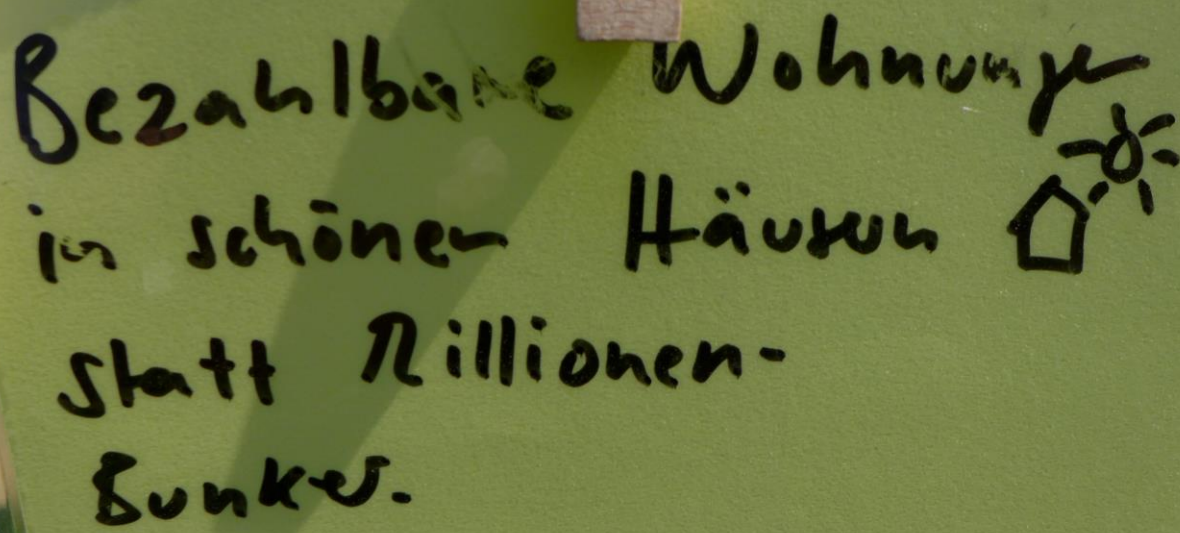 Bezahlbare Wohnungen
in schönen Häusern
statt Millionen-
Bunker.